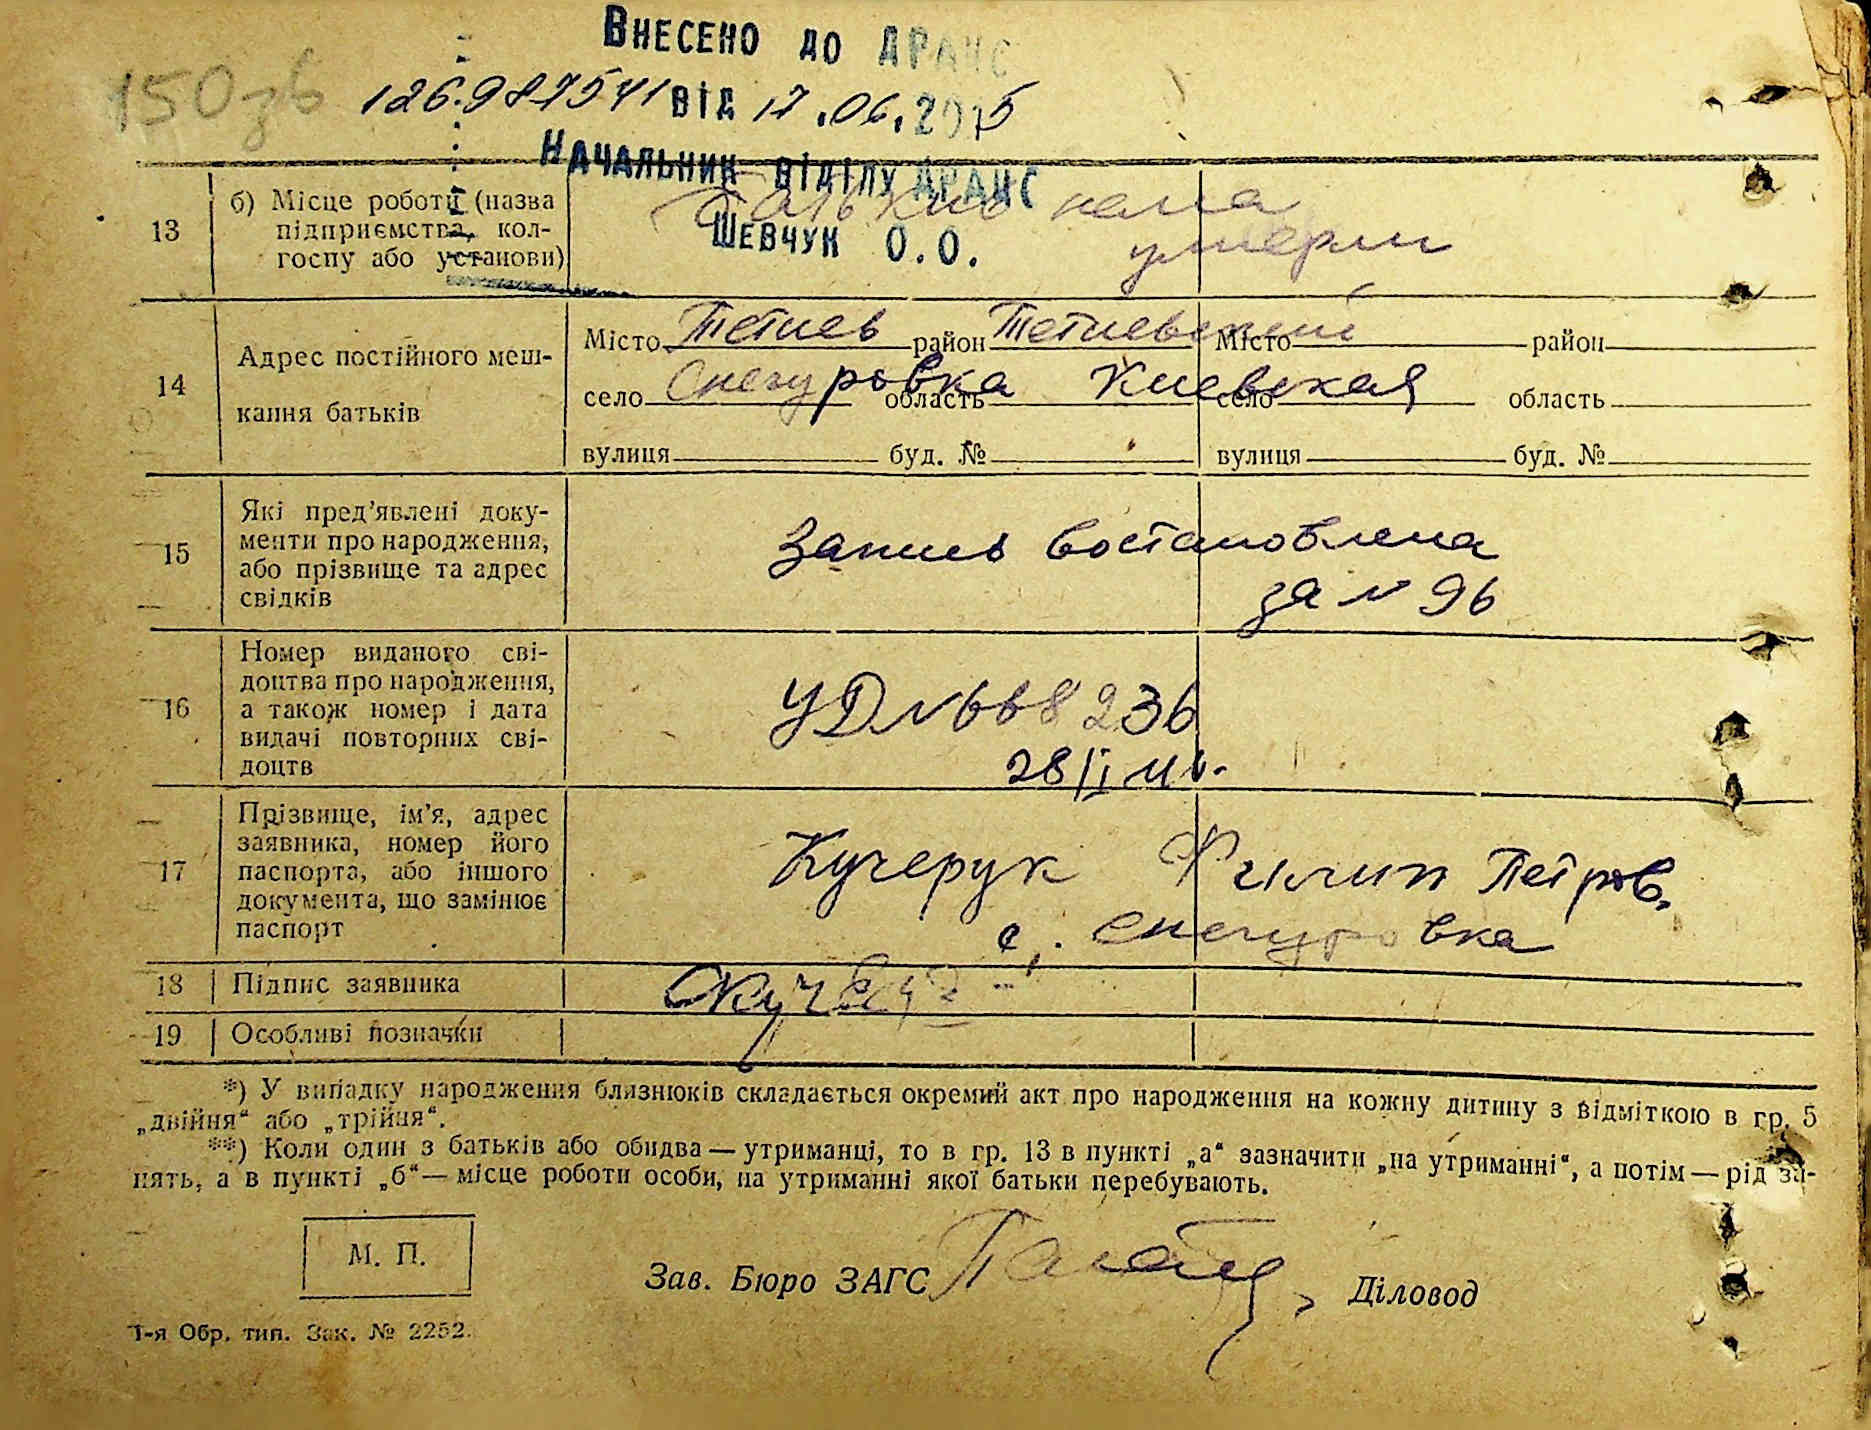 150зв
Внесено до ДРАЦС
126.987541 від 17.06.2015
Начальник відділу ДРАЦС
Шевчук О.О.
13
б) Місце роботи (назва
підприємства, кол-
госпу або установи)
нема
умерли
14
Адрес постійного меш-
кання батьків
Місто Тетиев район Тетиевский Місто район
село Снегуровка область Киевская село область
вулиця буд. № вулиця буд. №
15
Які пред'явлені доку-
менти про народження,
або прізвище та адрес
свідків
Запись востановлена
за № 96
16
Номер виданого сві-
доцтва про народження,
а також номер і дата
видачі повторних сві-
доцтв
УД № 668236
28/I
17
Прізвище, ім'я, адрес
заявника, номер його
паспорта, або іншого
документа, що замінює
паспорт
Кучерук Филип Петров.
с. Снегуровка
18 Підпис заявника
19 Особливі позначки
*) У випадку народження близнюків складається окремий акт про народження на кожну дитину з відміткою в гр. 5
„двійня“ або „трійня“.
**) Коли один з батьків або обидва — утриманці, то в гр. 13 в пункті „а“ зазначити „на утриманні“, а потім — рід за-
нять, а в пункті „б“ — місце роботи особи, на утриманні якої батьки перебувають.
М. П.
Зав. Бюро ЗАГС Діловод
1-я Обр. тип. Зак. № 2252.